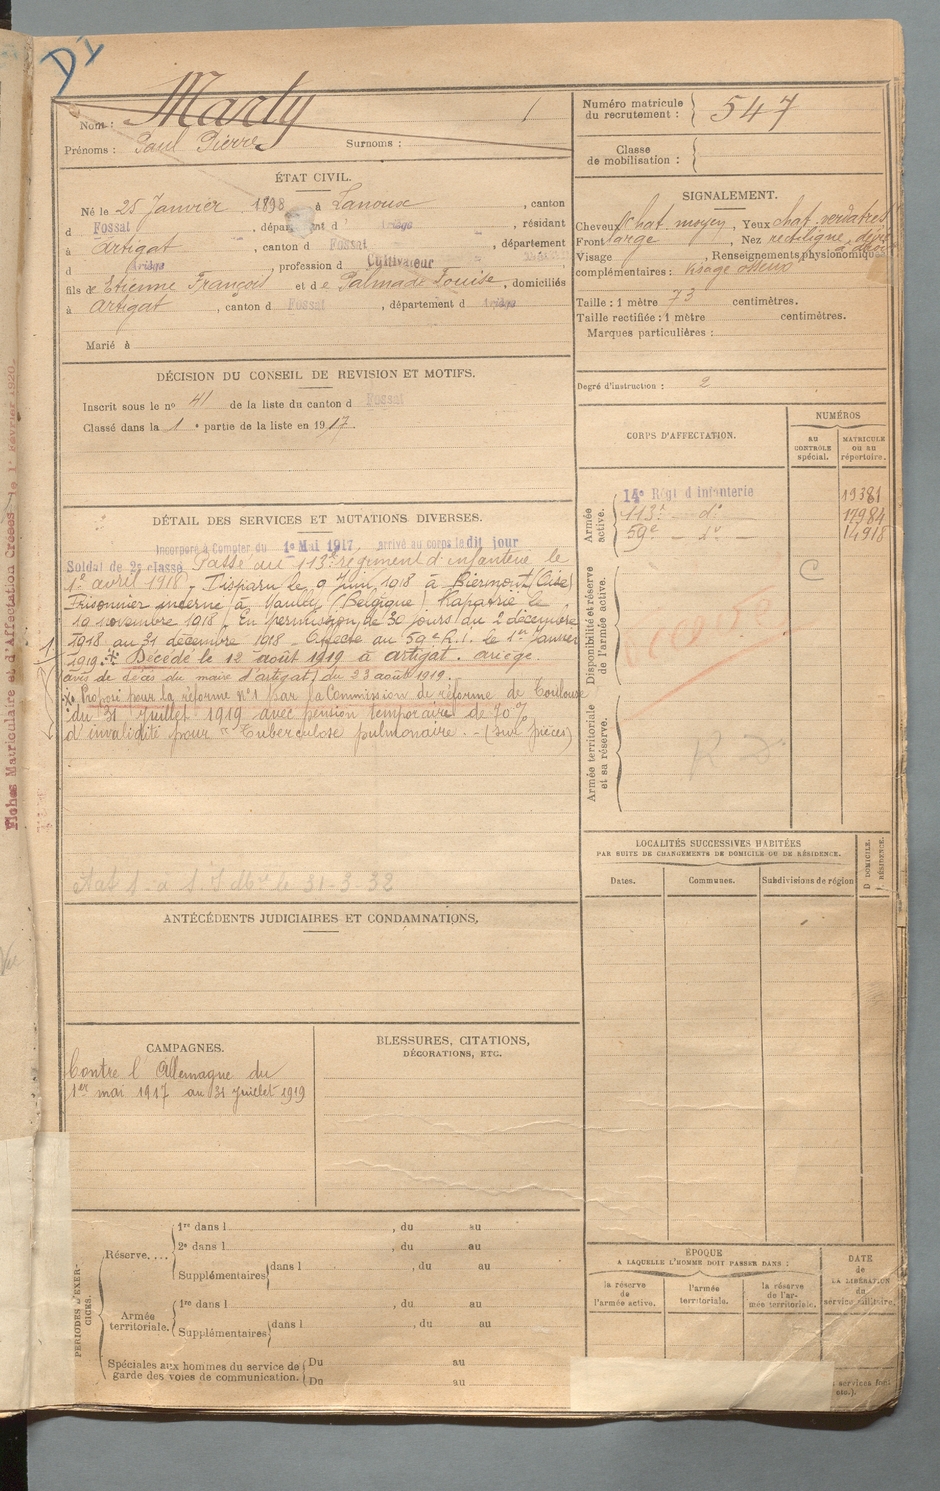 D1
Nom : Marty
1
Prénoms : Paul Pierre Surnoms :
Numéro matricule
du recrutement : 547
Classe
de mobilisation :
ÉTAT CIVIL.
Né le 25 Janvier 1898 à Lanoux, canton
d Fossat, département d Ariège, résidant
à Artigat, canton d Fossat, département
d Ariège, profession d Cultivateur
fils de Etienne François et de Palmade Louise, domiciliés
à Artigat, canton d Fossat, département d Ariège
Marié à
SIGNALEMENT.
Cheveux chat. moyen, Yeux chat. verdâtres
Front large, Nez rectiligne, dévié
à droite
Visage , Renseignements physionomiques
complémentaires : Visage osseux
Taille : 1 mètre 73 centimètres.
Taille rectifiée : 1 mètre centimètres.
Marques particulières :
Degré d'instruction : 2
DÉCISION DU CONSEIL DE REVISION ET MOTIFS.
Inscrit sous le nº 41 de la liste du canton d Fossat
Classé dans la 1e partie de la liste en 1917.
CORPS D'AFFECTATION.
NUMÉROS
AU
CONTROLE
spécial.
MATRICULE
OU AU
répertoire.
Armée
active.
14e Régt d'infanterie 19381
113e — dº 17984
59e — dº 14918
Disponibilité et réserve
de l'armée active.
C
Armée territoriale
et sa réserve.
DÉTAIL DES SERVICES ET MUTATIONS DIVERSES.
Incorporé à Compter du 1er Mai 1917, arrivé au corps le dit jour
Soldat de 2e classe. Passé au 113e régiment d'infanterie le
1er avril 1918. Disparu le 9 Juin 1918 à Biermont (Oise)
Prisonnier interné à (Belgique). Rapatrié le
19 novembre 1918. En permission de 30 jours du 2 décembre
1918 au 31 décembre 1918. Affecté au 59e R.I. le 1er Janvier
1919. Décédé le 12 août 1919 à Artigat. Ariège.
(avis de décès du maire d'Artigat) du 23 août 1919.
Proposé pour la réforme nº 1 par la Commission de réforme de Toulouse
du 31 Juillet 1919 avec pension temporaire de %
d'invalidité pour "Tuberculose pulmonaire. - (sur pièces)
le 31-3-32
Fiches Matriculaire et d'Affectation Créées le 1er Février 1920.
LOCALITÉS SUCCESSIVES HABITÉES
PAR SUITE DE CHANGEMENTS DE DOMICILE OU DE RÉSIDENCE.
Dates.
Communes.
Subdivisions de région
D. DOMICILE.
R. RÉSIDENCE.
ANTÉCÉDENTS JUDICIAIRES ET CONDAMNATIONS.
CAMPAGNES.
Contre l'Allemagne du
1er mai 1917 au 31 Juillet 1919
BLESSURES, CITATIONS,
DÉCORATIONS, ETC.
PÉRIODES D'EXER-
CICES.
Réserve....
1re dans l , du au
2e dans l , du au
Supplémentaires dans l , du au
Armée
territoriale.
1re dans l , du au
Supplémentaires dans l , du au
Spéciales aux hommes du service de
garde des voies de communication.
Du au
Du au
ÉPOQUE
A LAQUELLE L'HOMME DOIT PASSER DANS :
la réserve
de
l'armée active.
l'armée
territoriale.
la réserve
de l'ar-
mée territoriale.
DATE
de
LA LIBÉRATION
du
service militaire.